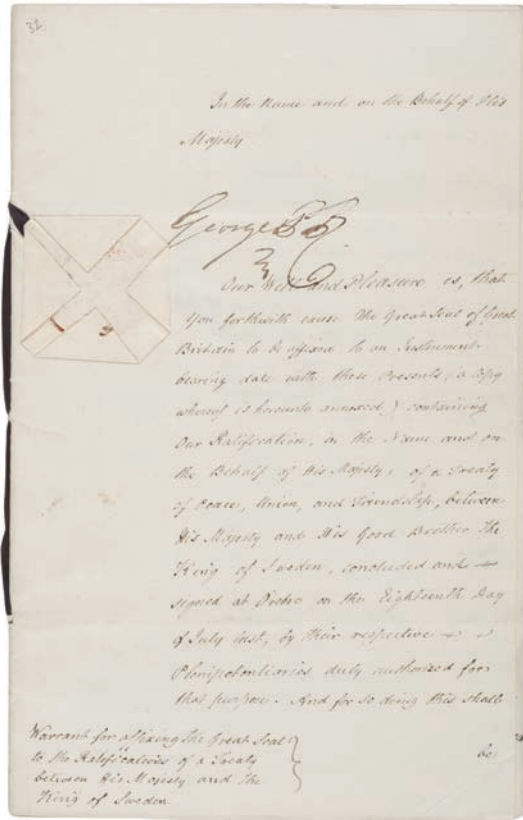 32.
In the Name and on the Behalf of His
Majesty
George P R
Our Will and Pleasure is, that
you forthwith cause the Great Seal of Great
Britain to be affixed to an Instrument
bearing date with these Presents (a Copy
whereof is hereunto annexed) containing
Our Ratification, in the Name and on
the Behalf of His Majesty, of a Treaty
of Peace, Union, and Friendship, between
His Majesty and His Good Brother The
King of Sweden, concluded and
signed at Örebro on the Eighteenth Day
of July last, by their respective
Plenipotentiaries duly authorized for
that purpose. And for so doing this shall
be
Warrant for affixing the Great Seal
to the Ratification of a Treaty
between His Majesty and The
King of Sweden